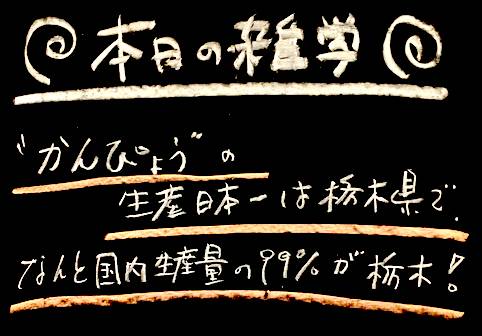 本日の雑学
"かんぴょう"の
生産日本一は栃木県で、
なんと国内生産量の99%が栃木!